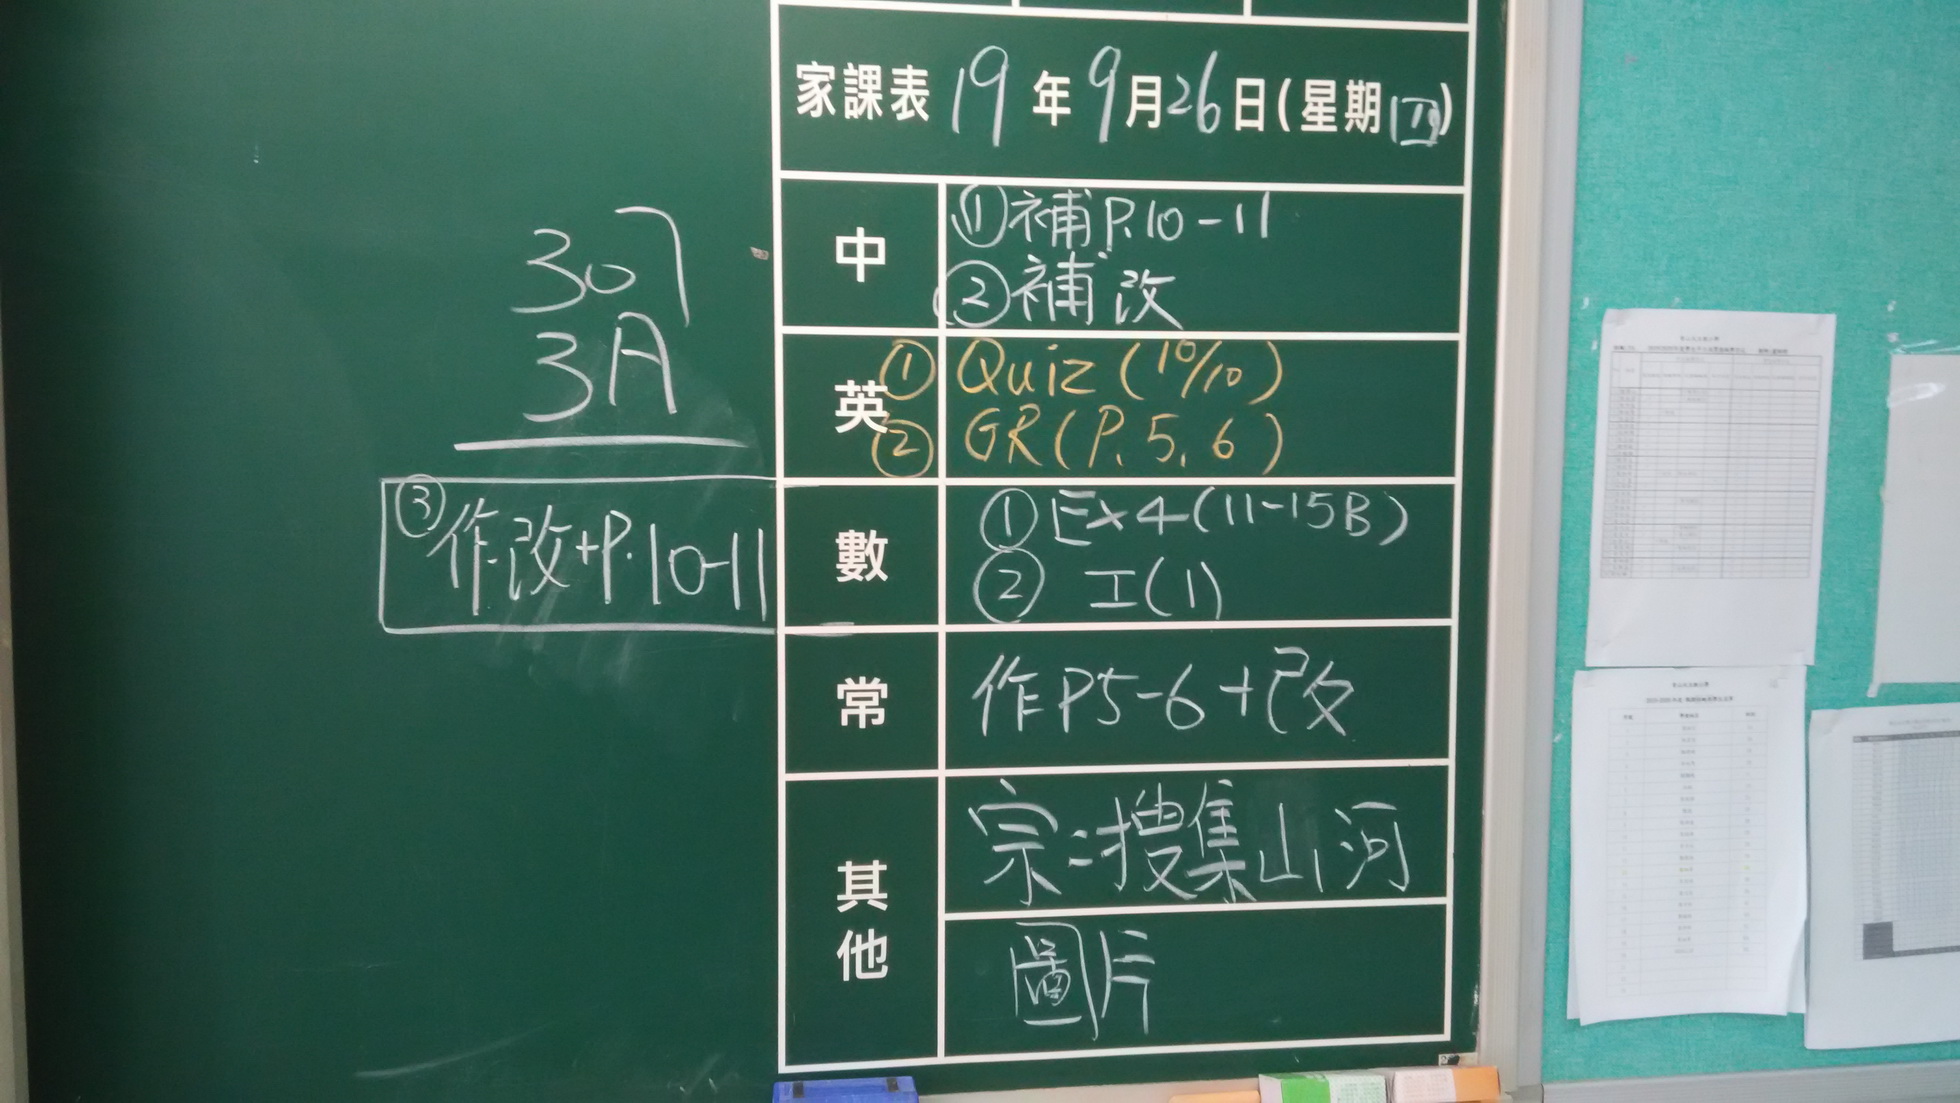 家課表 19年9月26日(星期四)
307
3A
中
①補P.10-11
②補改
英
① Quiz (10/10)
② GR(P.5,6)
③作改+P.10-11
數
① Ex4(11-15B)
② 工(1)
常
作P5-6+改
其他
宗:搜集山河
圖片